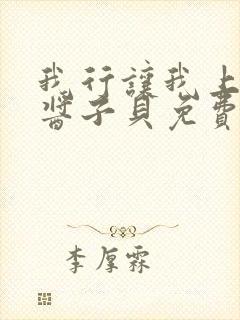 我行讓我上
醬子貝免費
李厚霖